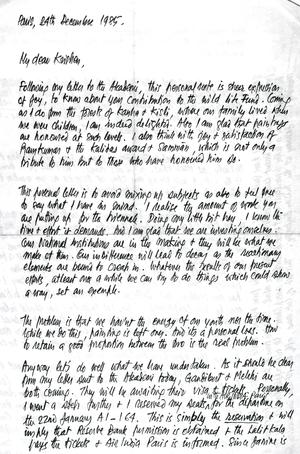 Paris, 24th December 1985.
My dear Krishen,
Following my letter to the Akademi, this personal note is sheer expression
of joy, to know about your contribution to the Wild Life Fund. Coming
as I do from the forest of Kanha + Kisli, where our family lived when
we were children, I am indeed delighted. Also I am glad that paintings
are honoured at such levels. I also think with joy + satisfaction of
Ramkumar + the Kalidas award + Samman, which is not only a
tribute to him but to those who have honoured him so.
This personal letter is to avoid mixing up subjects as also to feel free
to say what I have in mind. I realise the amount of work you
are putting up for the Triennale. Doing my little bit here, I know the
time + effort it demands. And I am glad that we are investing ourselves.
Our National Institutions are in the making + they will be what we
make of them. Our indifference will lead to decay as the reactionary
elements are bound to creep in. Whatever the results of our present
efforts, at least for a while we can try to do things which could show
a way, set an example.
The problem is that we haven't the energy of our youth nor the time.
While we do this, painting is left out. And it's a personal loss. How
to retain a good proportion between the two is the real problem.
Anyway let's do well what we have undertaken. As it should be clear
from my letter sent to the Akademi today, Gaudibert + Pelchi are
both coming. They will be awaiting their visa + tickets. Personally,
I went a step further + I reserved my seat for the departure on
the 22nd January A1-164. This is simply the reservation + will
imply that Reserve Bank permission is obtained + the Lalit Kala
pays the ticket + Air India Paris is informed. Since Janine is